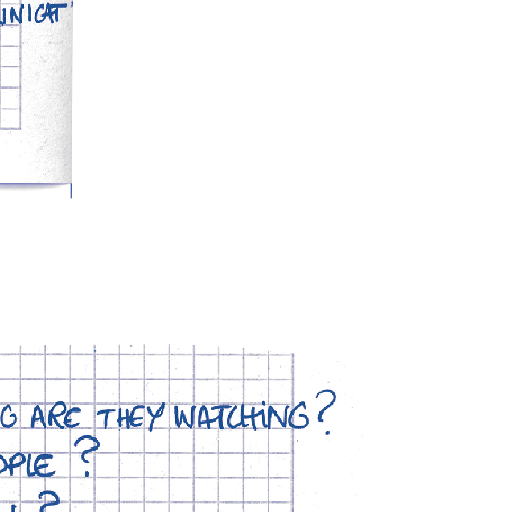 UNICAT
G ARE THEY WATCHING?
OPLE ?
?